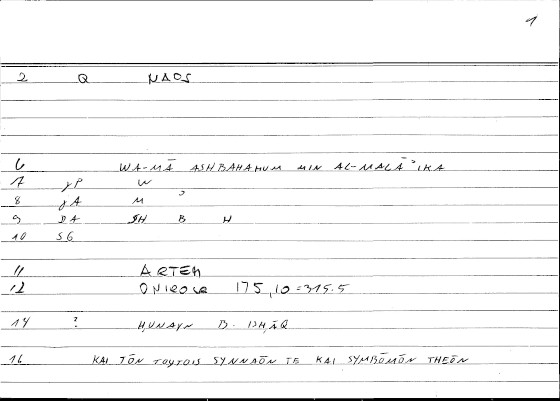 1
2 Q NAOS
6 WA-MĀ ASHBAHAHUM MIN AL-MALĀʾIKA
7 γP W
8 γA M ʾ
9 SH B H
10 SG
11 ARTEM
12 ONIROCR 175,10=315.5
14 ? ḤUNAYN B. ISḤĀQ
16 KAI TŌN TOYTOIS SYNNAŌN TE KAI SYMBŌMŌN THEŌN